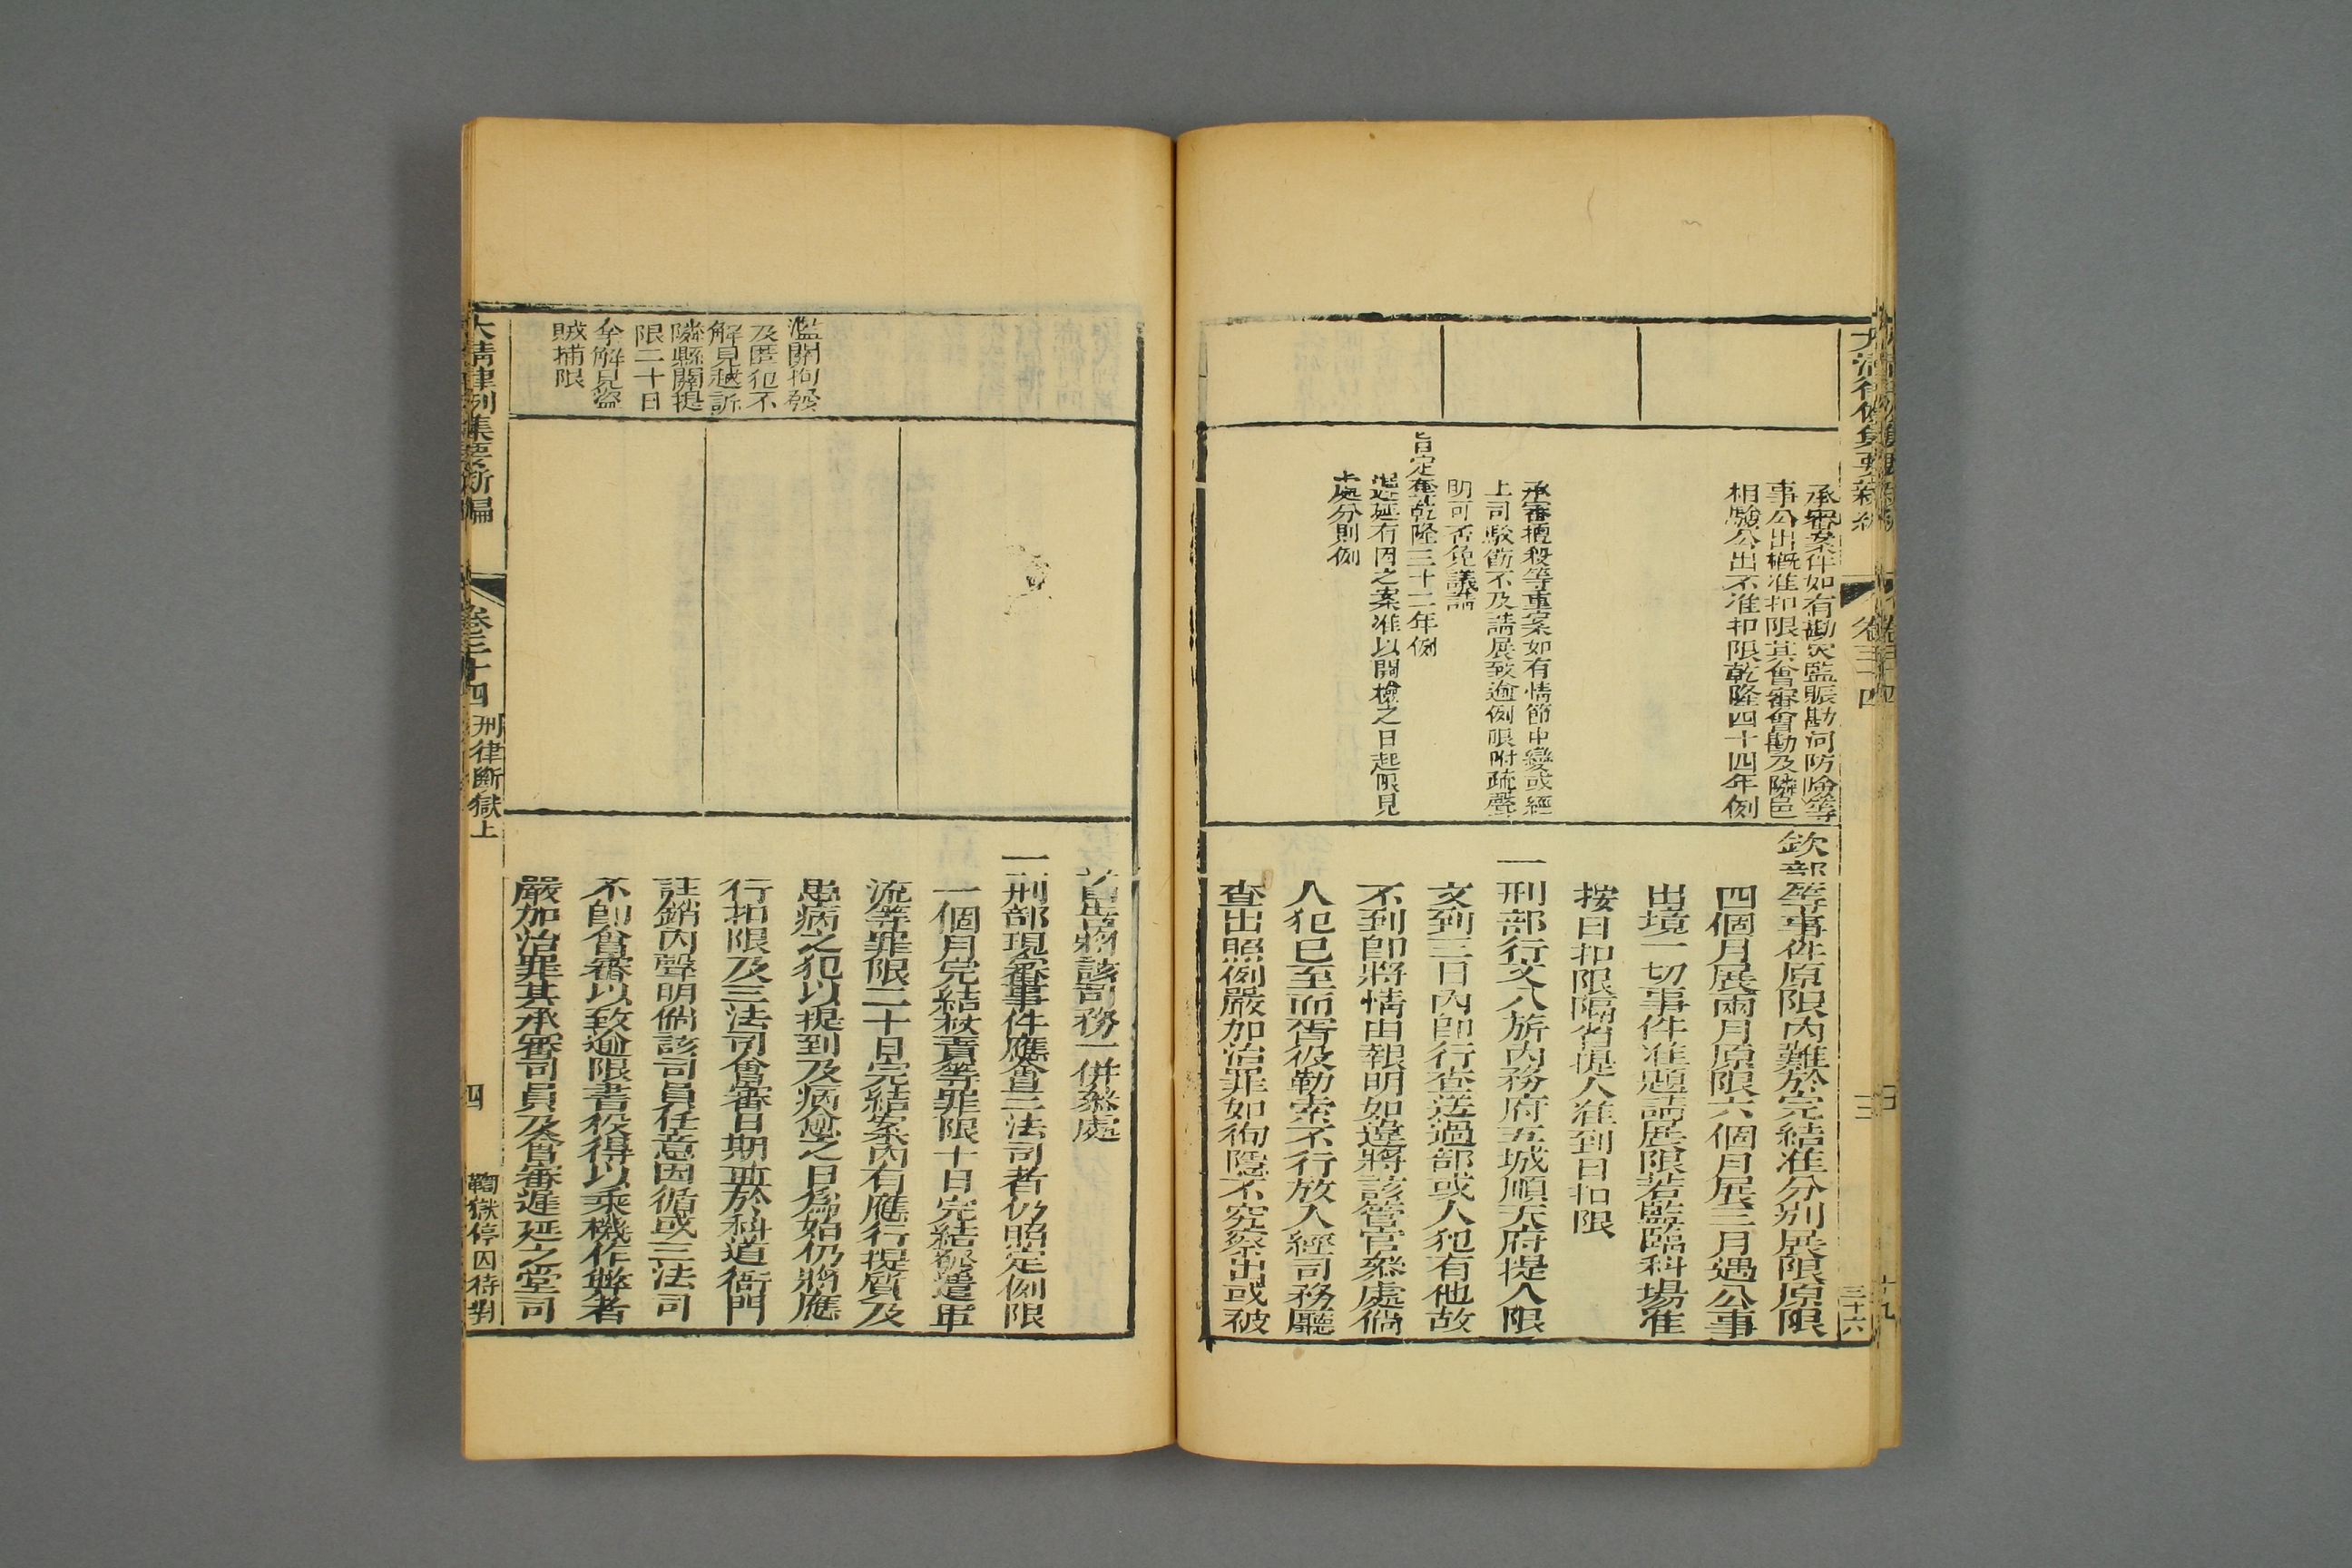 承審案件如有勘災監賑勘河防險等
事公出概准扣限其會審會勘及隣邑
相驗公出不准扣限乾隆四十四年例
承審擅殺等重案如有情節中變或經
上司駁飭不及請展致逾例限附疏聲
明可否免議請
旨定奪乾隆三十二年例
遲延有因之案准以開檢之日起限見
處分則例
欽部等事件原限內難於完結准分别展限原限
四個月展兩月原限六個月展三月遇公事
出境一切事件准題請展限若監臨科場准
按日扣限隔省提人准到日扣限
一刑部行文八旂內務府五城順天府提人限
文到三日內即行查送過部或人犯有他故
不到即將情由報明如違將該管官叅處倘
人犯已至而胥役勒索不行放入經司務廳
查出照例嚴加治罪如徇隱不究察出或被
首出將該司務一併叅處
一刑部現審事件應會三法司者仍照定例限
一個月完結杖責等罪限十日完結發遣軍
流等罪限二十日完結案內有應行提質及
患病之犯以提到及病愈之日爲始仍將應
行扣限及三法司會審日期逐於科道衙門
註銷內聲明倘該司員任意因循或三法司
不即會審以致逾限書役得以乘機作弊者
嚴加治罪其承審司員及會審遲延之堂司
濫關拘發
及匿犯不
解見越訴
隣縣關提
限二十日
拿解見盜
賊捕限
大清律例集要新編
卷三十四
刑律斷獄上
四
鞫獄停囚待對